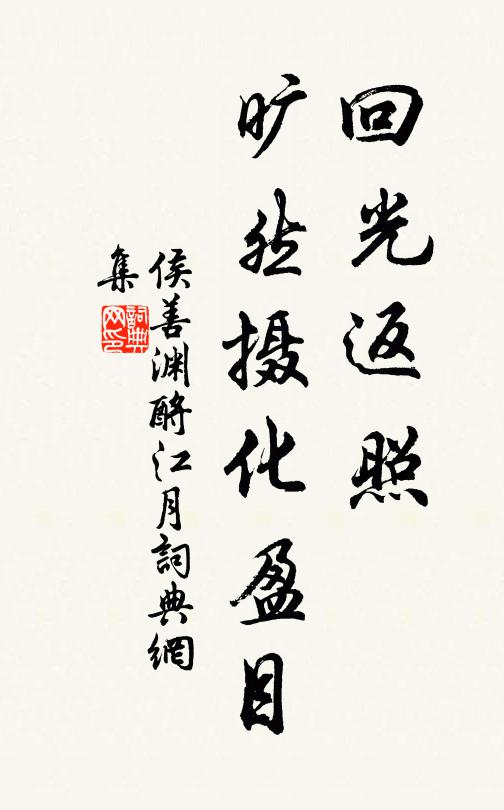 回光返照
旷然摄化盈目
侯善渊酹江月詞典網
集
詞典网印